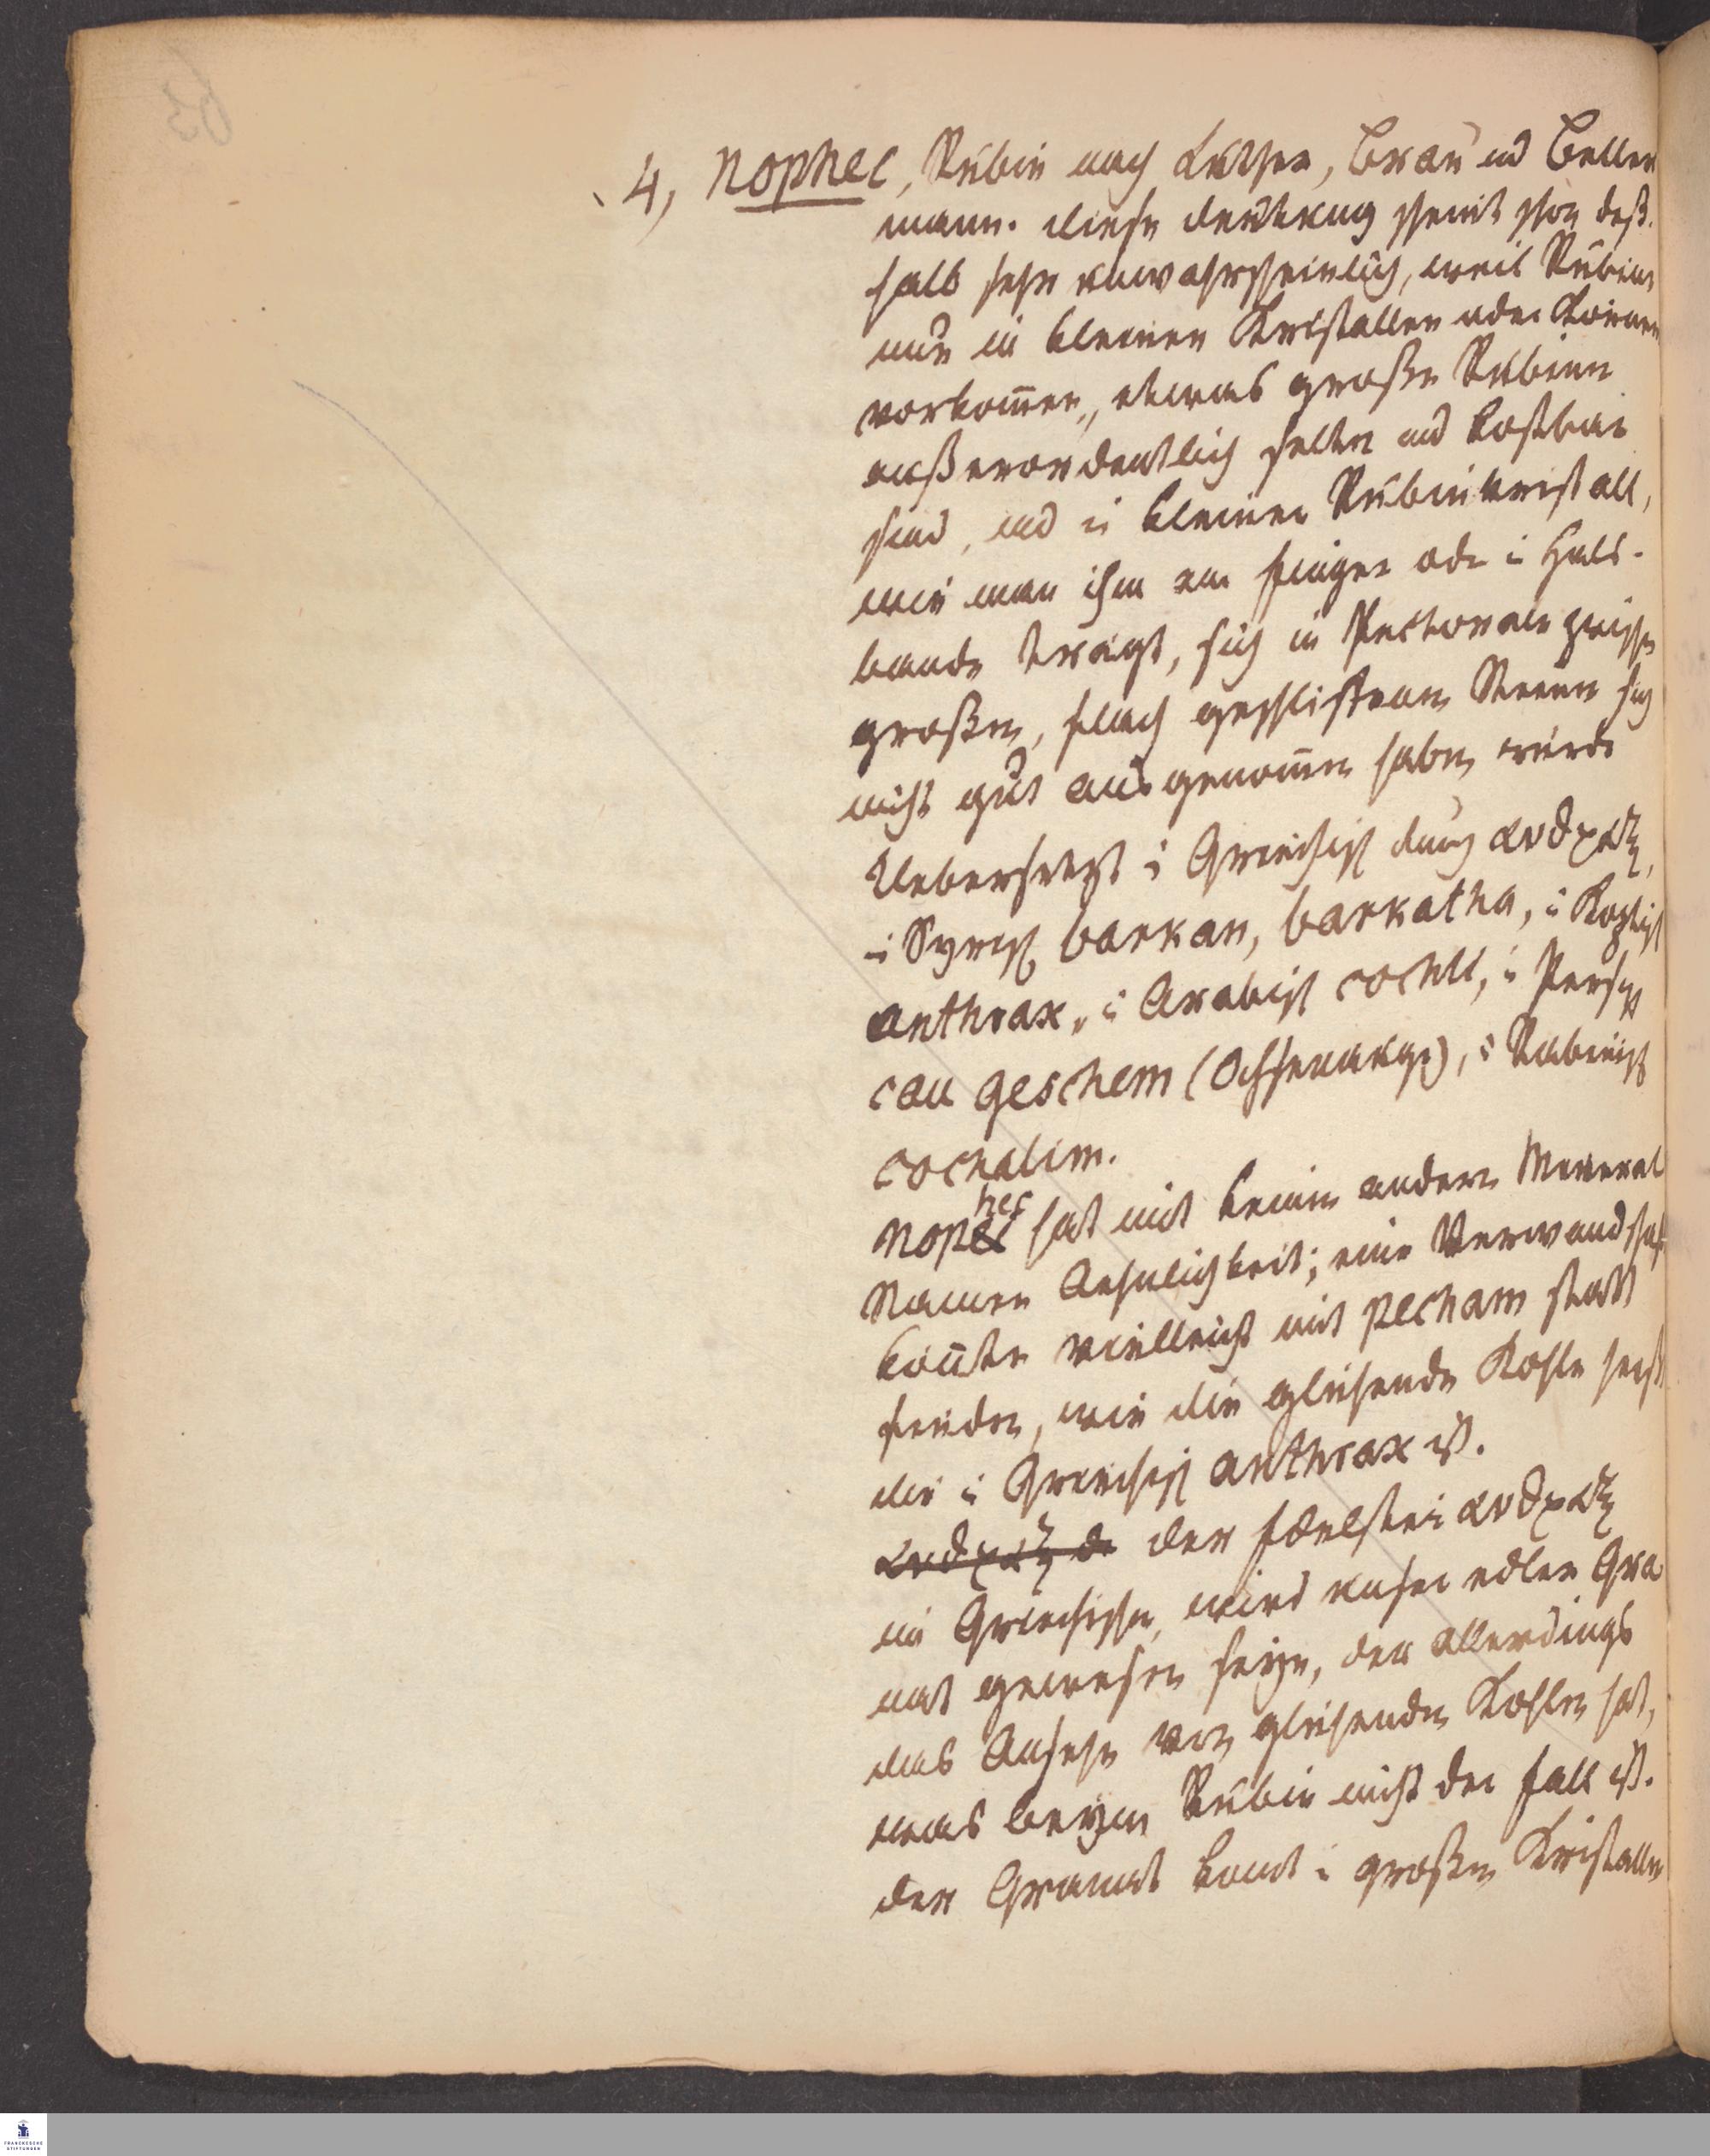 63
4, Nophec, Rubin nach Luther, Braun und Beller
mann. diese Deutung scheint schon deß-
halb sehr unwahrscheinlich, weil Rubine
nur in kleinen Kristallen oder Körnern
vorkom̄en, etwas große Rubine
außerordentlich selten und kostbar
sind, und ein kleiner Rubinkristall,
wie man ihn am Finger oder im Hals-
bande trägt, sich im Pectorale zwischen
großen, flach geschliffenen Steinen sich
nicht gut ausgenom̄en haben würde
Uebersetzt im Griechisch durch ανϑραξ,
im Syrisch barkan, barkatha, im Koptisch
anthrax, im Arabisch cochli, im Persisch
cau geschem (Ochsenauge), im Rabinisch
cochalim.
Nophec hat mit keinem andern Mineral
Namen Aehnlichkeit; eine Verwandschaft
kön̄te vielleicht mit pecham statt
finden, wie die glühende Kohle heißt
die im Griechisch anthrax ist.
ανϑραξ de der Edelstein ανϑραξ
im Griechischen, wird unser edler Gra
nat gewesen seyn, der allerdings
das Ansehn von glühenden Kohlen hat,
was beym Rubin nicht der Fall ist.
der Granat kom̄t in großen Kristallen
FRANCKESCHE
STIFTUNGEN